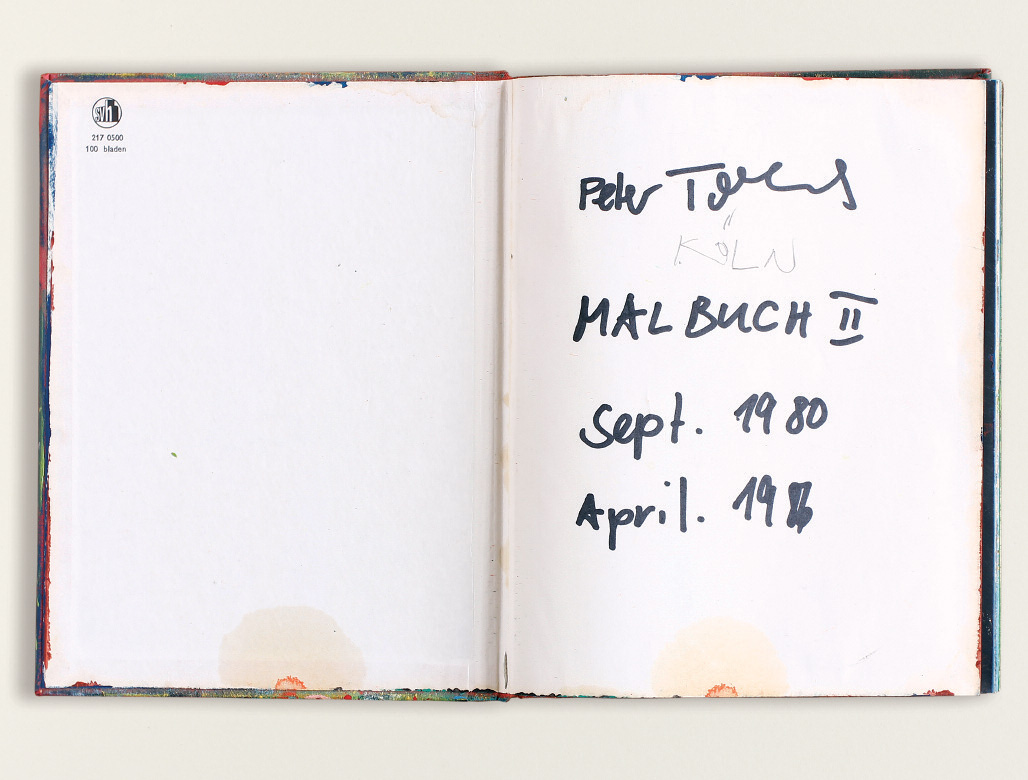 svh
217 0500
100 bladen
Peter
KÖLN
MALBUCH II
Sept. 1980
April. 19